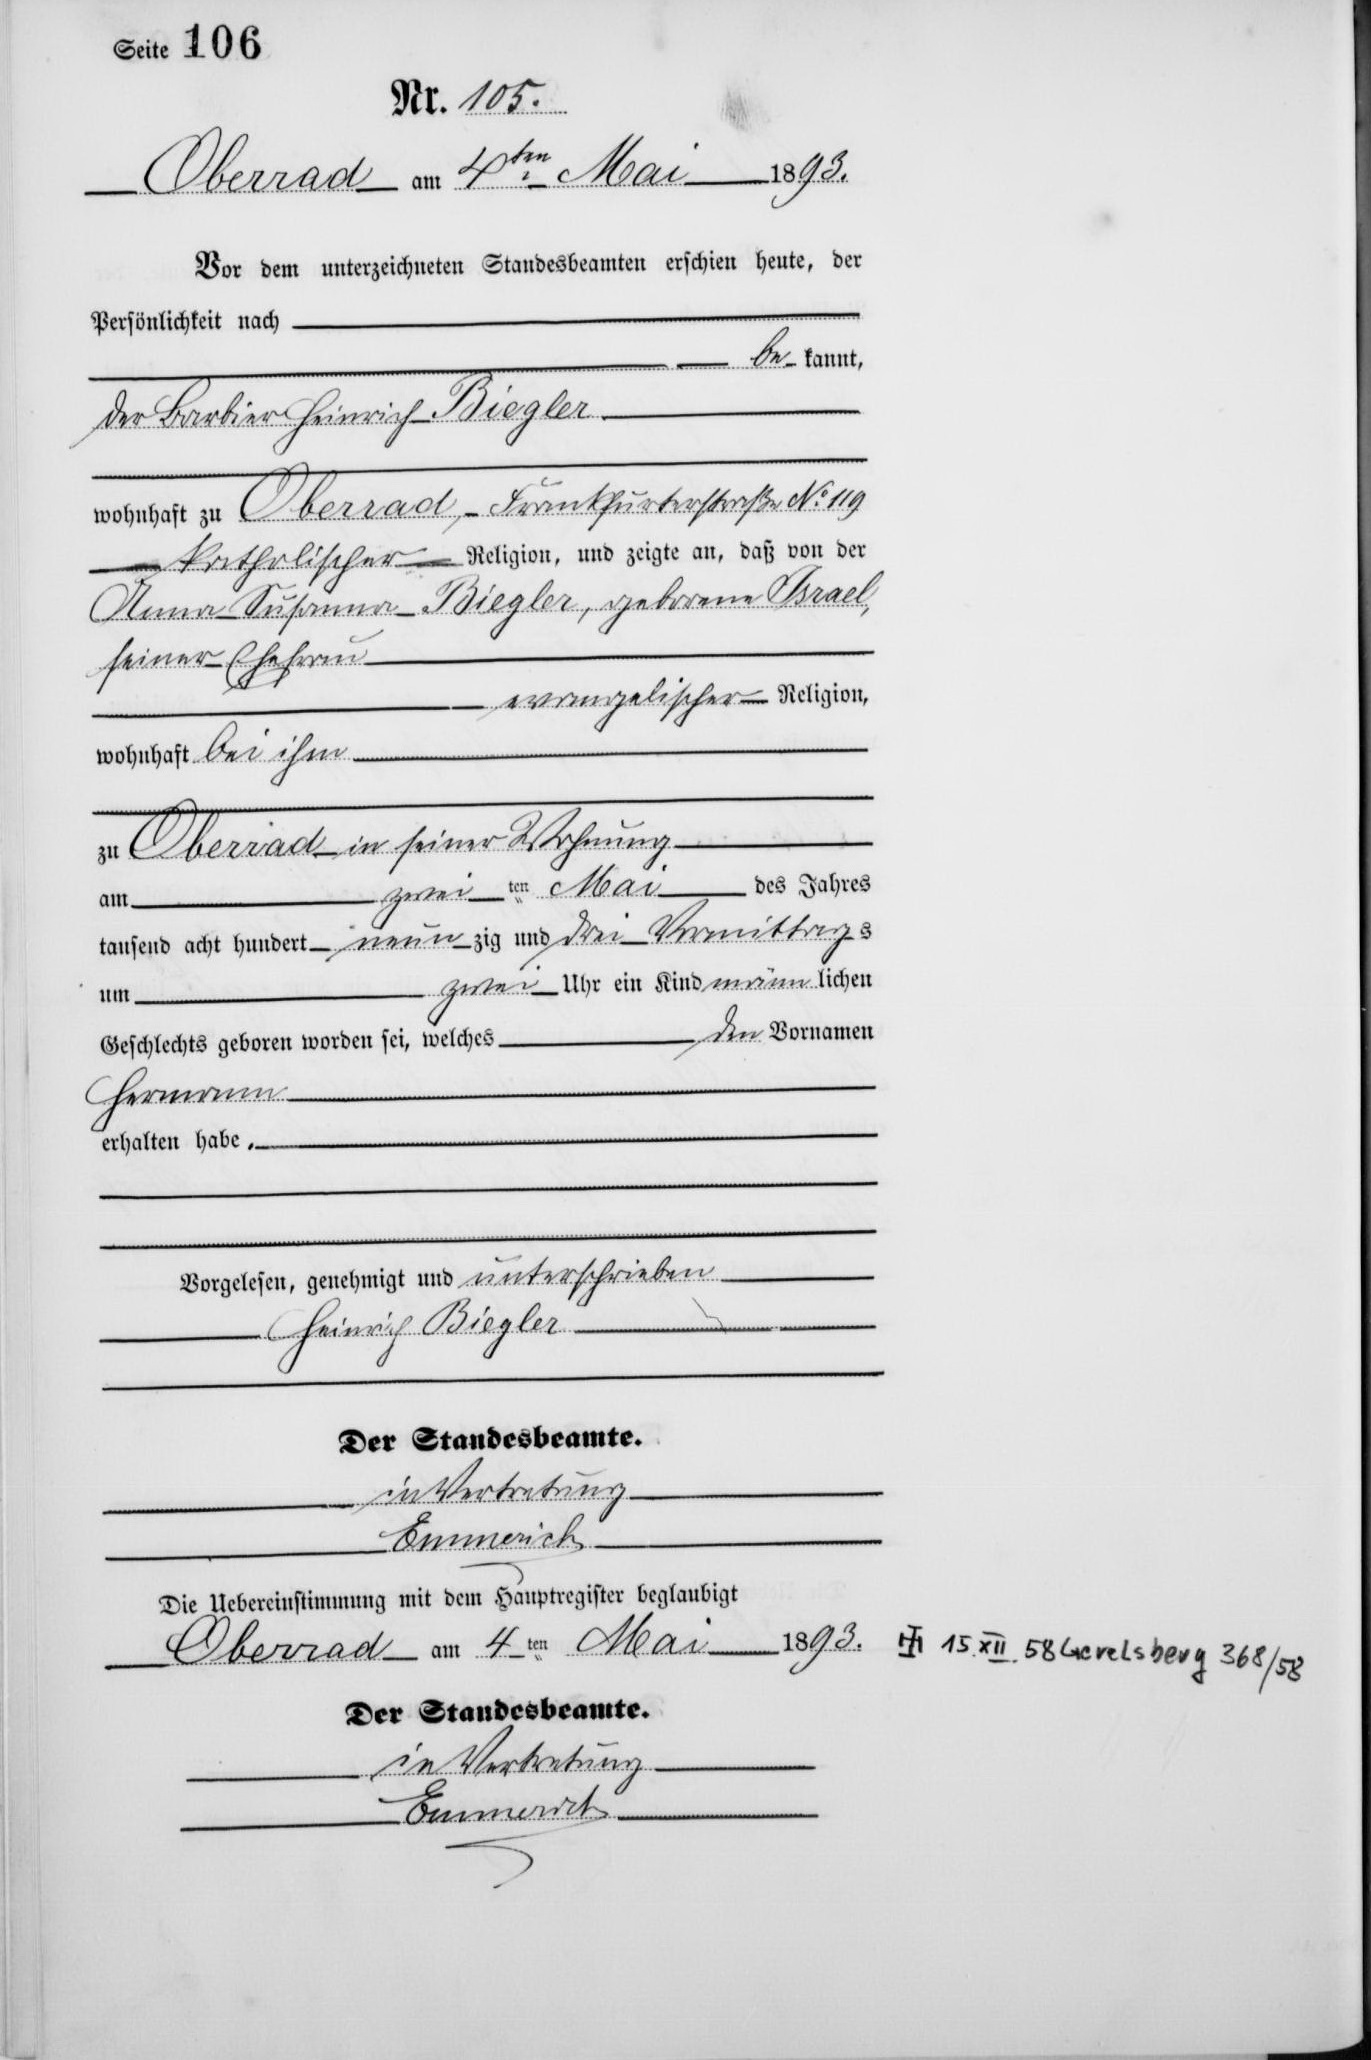 Seite 106
Nr. 105.
Oberrad am 4ten Mai 1893.
Vor dem unterzeichneten Standesbeamten erschien heute, der
Persönlichkeit nach
be kannt,
der Barbier Heinrich Biegler
wohnhaft zu Oberrad, Frankfurterstraße No. 119
katholischer Religion, und zeigte an, daß von der
Anna Susanna Biegler, geborene Israel,
seiner Ehefrau
evangelischer Religion,
wohnhaft bei ihm
zu Oberrad in seiner Wohnung
am zwei ten Mai des Jahres
tausend acht hundert neun zig und drei Vormittags
um zwei Uhr ein Kind männ lichen
Geschlechts geboren worden sei, welches den Vornamen
Hermann
erhalten habe.
Vorgelesen, genehmigt und unterschrieben
Heinrich Biegler
Der Standesbeamte.
in Vertretung
Emmerich
Die Uebereinstimmung mit dem Hauptregister beglaubigt
Oberrad am 4 ten Mai 1893. 15. XII. 58 Gevelsberg 368/58
Der Standesbeamte.
in Vertretung
Emmerich